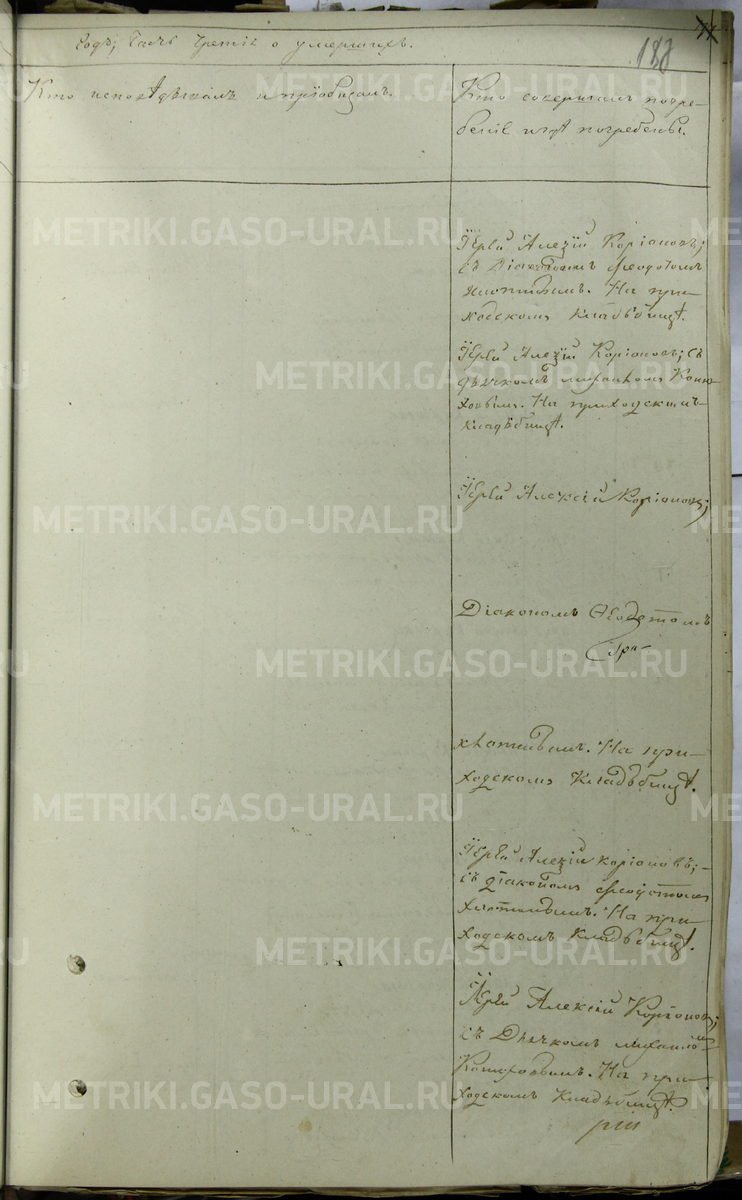 Годъ; Часть Третiя о умершихъ.
188
Кто исповѣдывалъ и прiобщалъ.
Кто совершалъ погре-
бенiе и гдѣ погребены.
Iерей Алексiй Корiоновъ;
съ Дiакономъ Феодотомъ
Хлопинымъ. На при-
ходскомъ Кладбищѣ.
Iерей Алексiй Корiоновъ; съ
дьячкомъ Михаиломъ
На приходскомъ
кладбищѣ.
Iерей Алексiй Корiоновъ;
Дiакономъ Ѳеодотомъ
На при-
ходскомъ Кладбищѣ.
Iерей Алексiй Корiоновъ;
съ дiакономъ Феодотомъ
На при-
ходскомъ Кладбищѣ.
Iерей Алексiй Корiоновъ;
съ Дьячкомъ Михаиломъ
На при-
ходскомъ Кладбищѣ.
METRIKI.GASO-URAL.RU